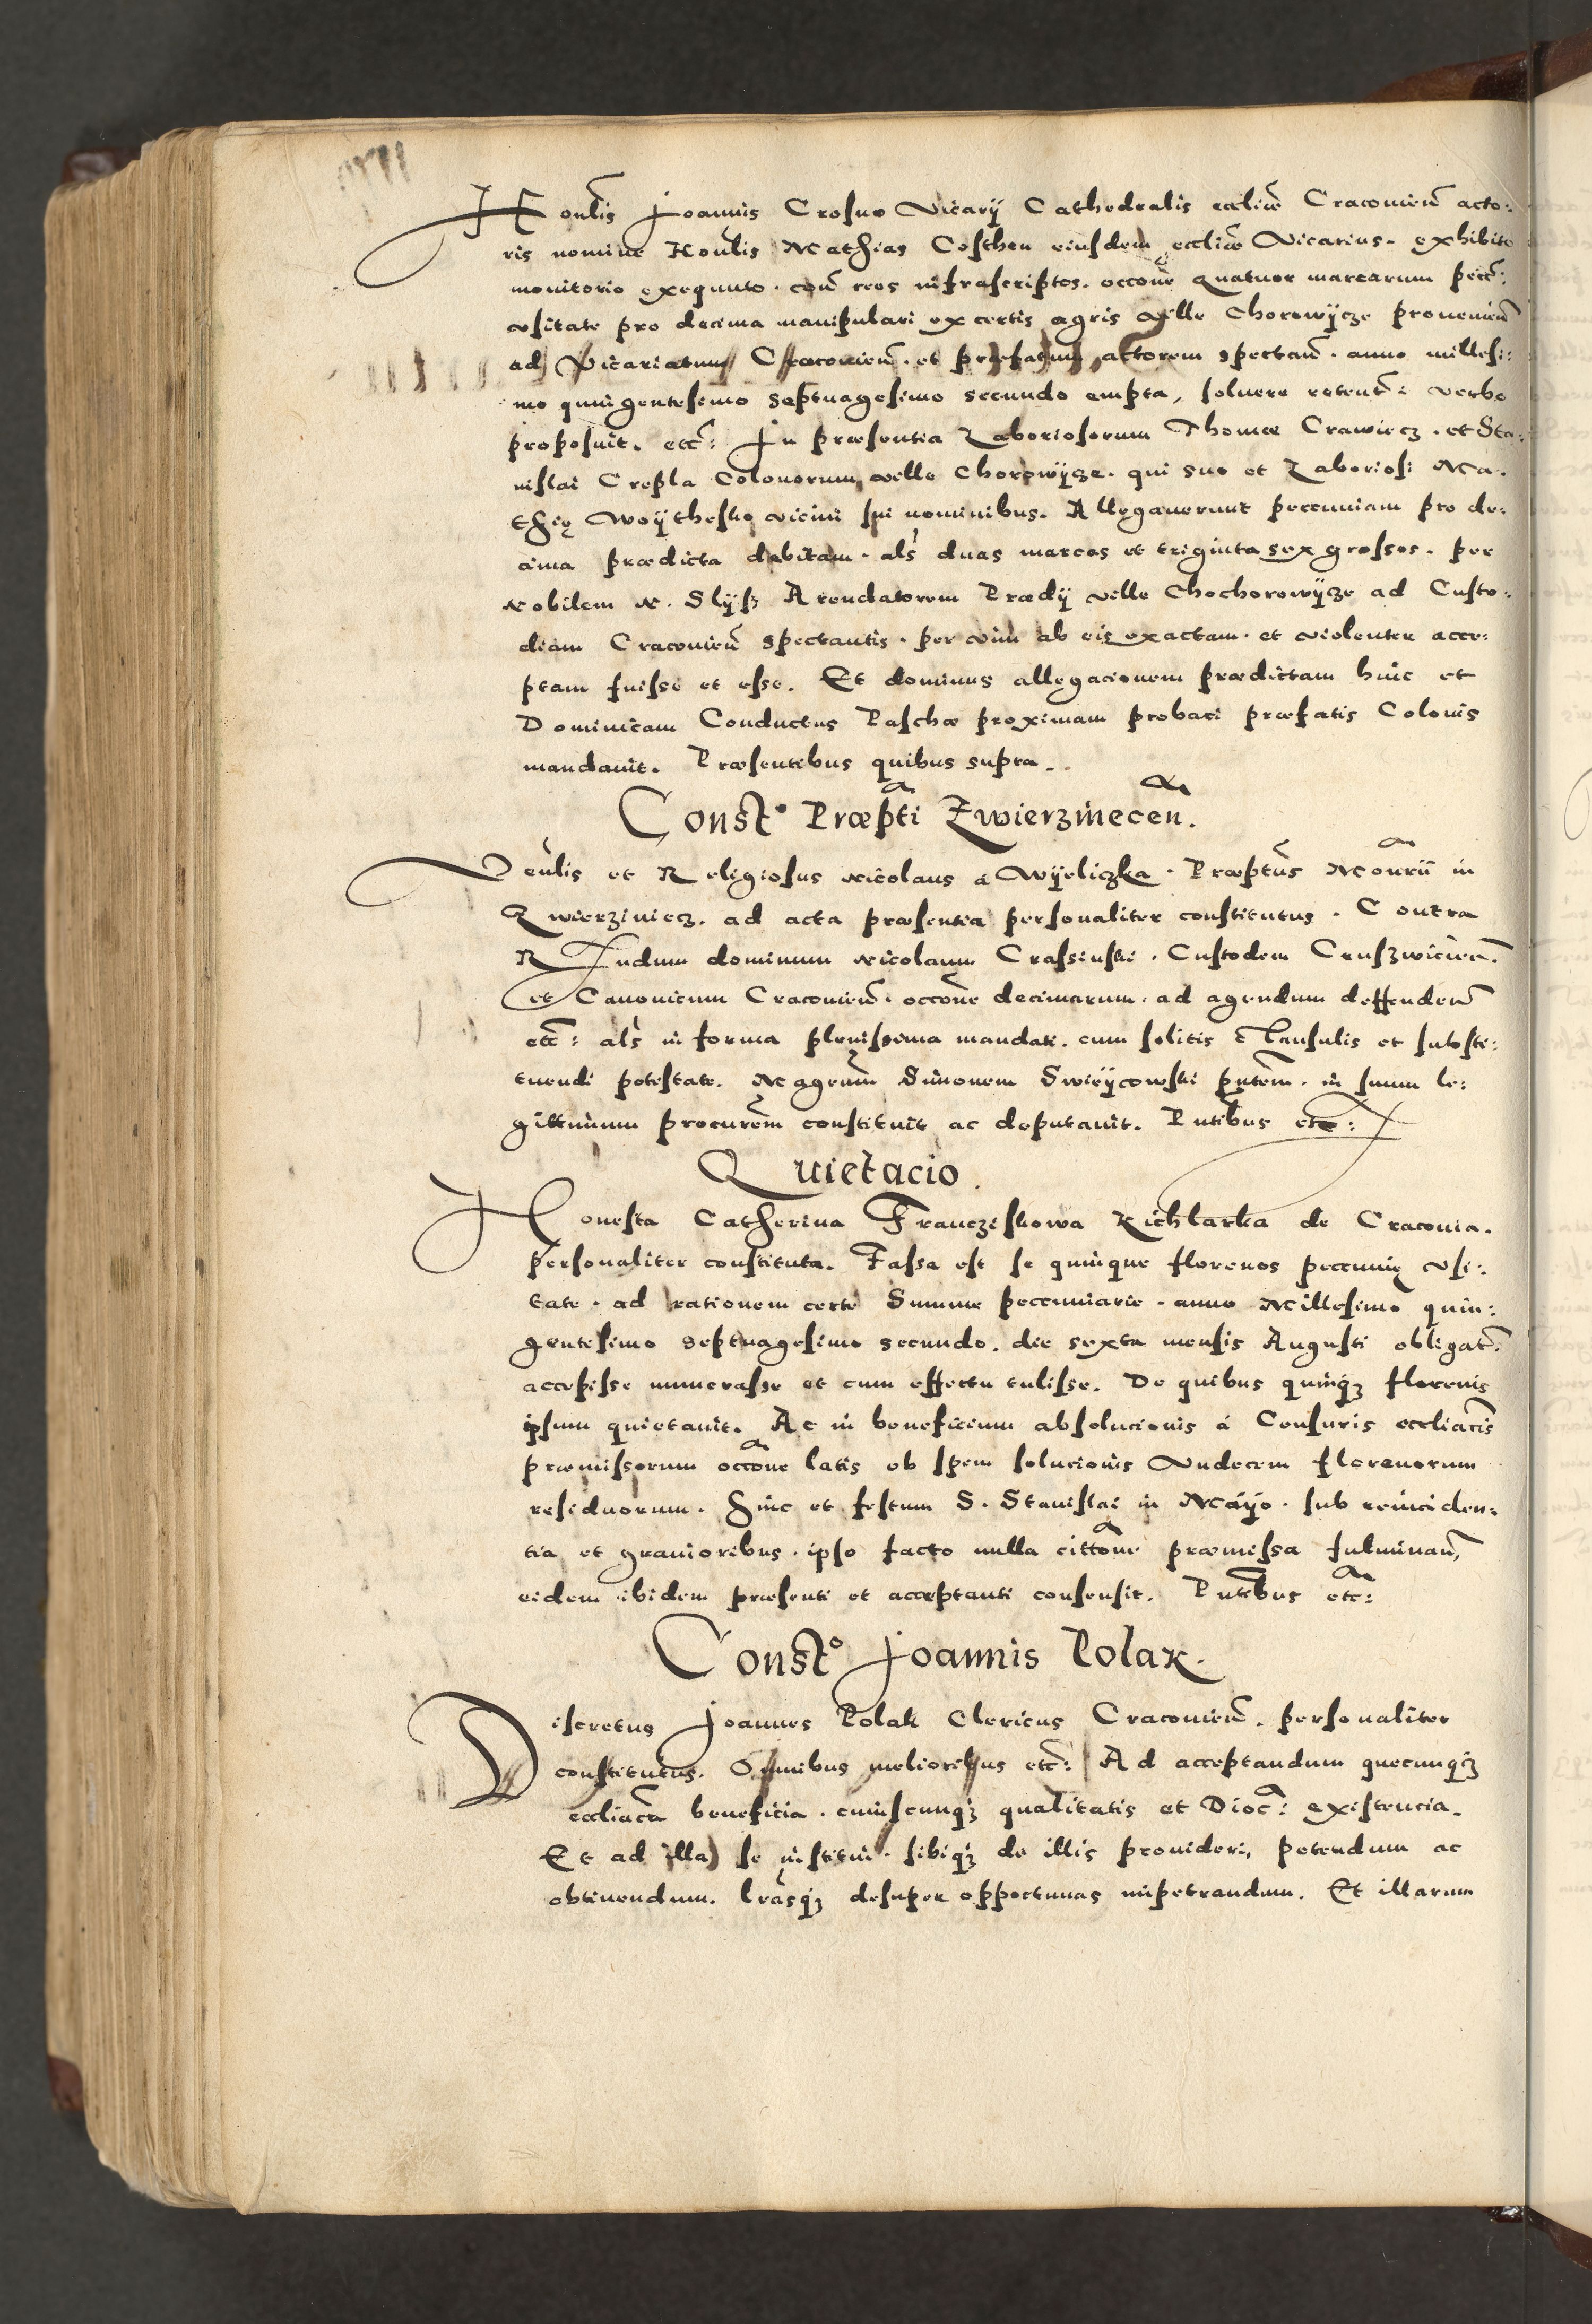 Honlis Joannis Crosno Vicarij Cathedralis eccliæ Cracovien acto:
ris nomine Honlis Mathias Costhen eiusdem eccliæ Vicarius. exhibito
monitorio exequuto. con reos infrascriptos. occone quatuor marcarum pecc:
usitate pro decima manipulari ex certis agris ville Chorowycze provenien
ad Vicariatum Cracovien. et præfatum actorem spectan. anno millesi:
mo quingentesimo septuagesimo secundo empta, solvere retent: verbo
proposuit. etc: In præsentia Laboriosorum Thomæ Crawiecz. et Sta:
nislai Crepla Colonorum ville Chorowycze. qui suo et Laboriosi Ma:
thię Woythesko vicini sui nominibus. Allegaverunt pecuniam pro de:
cima prædicta debitam. als duas marcas et triginta sex grossos. per
nobilem N. Slysz Arendatorem Prædij ville Chochorowycze ad Custo:
diam Cracovien spectantis. per vim ab eis exactam. et violenter acce:
ptam fuisse et esse. Et dominus allegacionem prædictam hinc et
Dominicam Conductus Paschæ proximam probari præfatis Colonis
mandavit. Præsentibus quibus supra.
Const.º Præpti Zwierzinecen.
Venlis et Religiosus Nicolaus á Wyeliczka. Præptus Monrii in
Zwierziniecz. ad acta præsentia personaliter constitutus. Contra
Rndum dominum Nicolaum Crassinski. Custodem Cruszwicien.
et Canonicum Cracovien. occone decimarum. ad agendum deffenden
etc: als in forma plenissima mandati. cum solitis Clausulis et substi:
tuendi potestate. Magrum Simonem Swirycowski pntem. in suum le:
gittimum procurem constituit ac deputavit. Pntibus etc:
Quietacio.
Honesta Catherina Franczisskowa Richlarka de Cracovia.
personaliter constituta. Fassa est se quinque florenos peccunię usi:
tate. ad rationem certe Summe peccuniarie. anno Millesimo quin:
gentesimo septuagesimo secundo. die sexta mensis Augusti obligat:
accepisse numerasse et cum effectu tulisse. De quibus quinqz florenis
ipsum quietavit. Ac in beneficium absolucionis á Censuris eccliacis
præmissorum occone latis ob spem solucionis Undecem florenorum
residuorum. hinc et festum S. Stanislai in Mayo. sub reinciden:
tia et gravioribus. ipso facto nulla cittone præmissa fulminan,
eidem ibidem præsenti et acceptanti consensit. Pntibus etc:
Const.º Joannis Polak.
Discretus Joannes Polak Clericus Cracovien. personaliter
constitutus. Omnibus melioribus etc: Ad acceptandum quecunqz
eccliaca beneficia. cuiuscunqz qualitatis et Dioc: existencia.
Et ad illa se institui. sibiqz de illis provideri, petendum ac
obtinendum. lrasqz desuper opportunas impetrandum. Et illarum